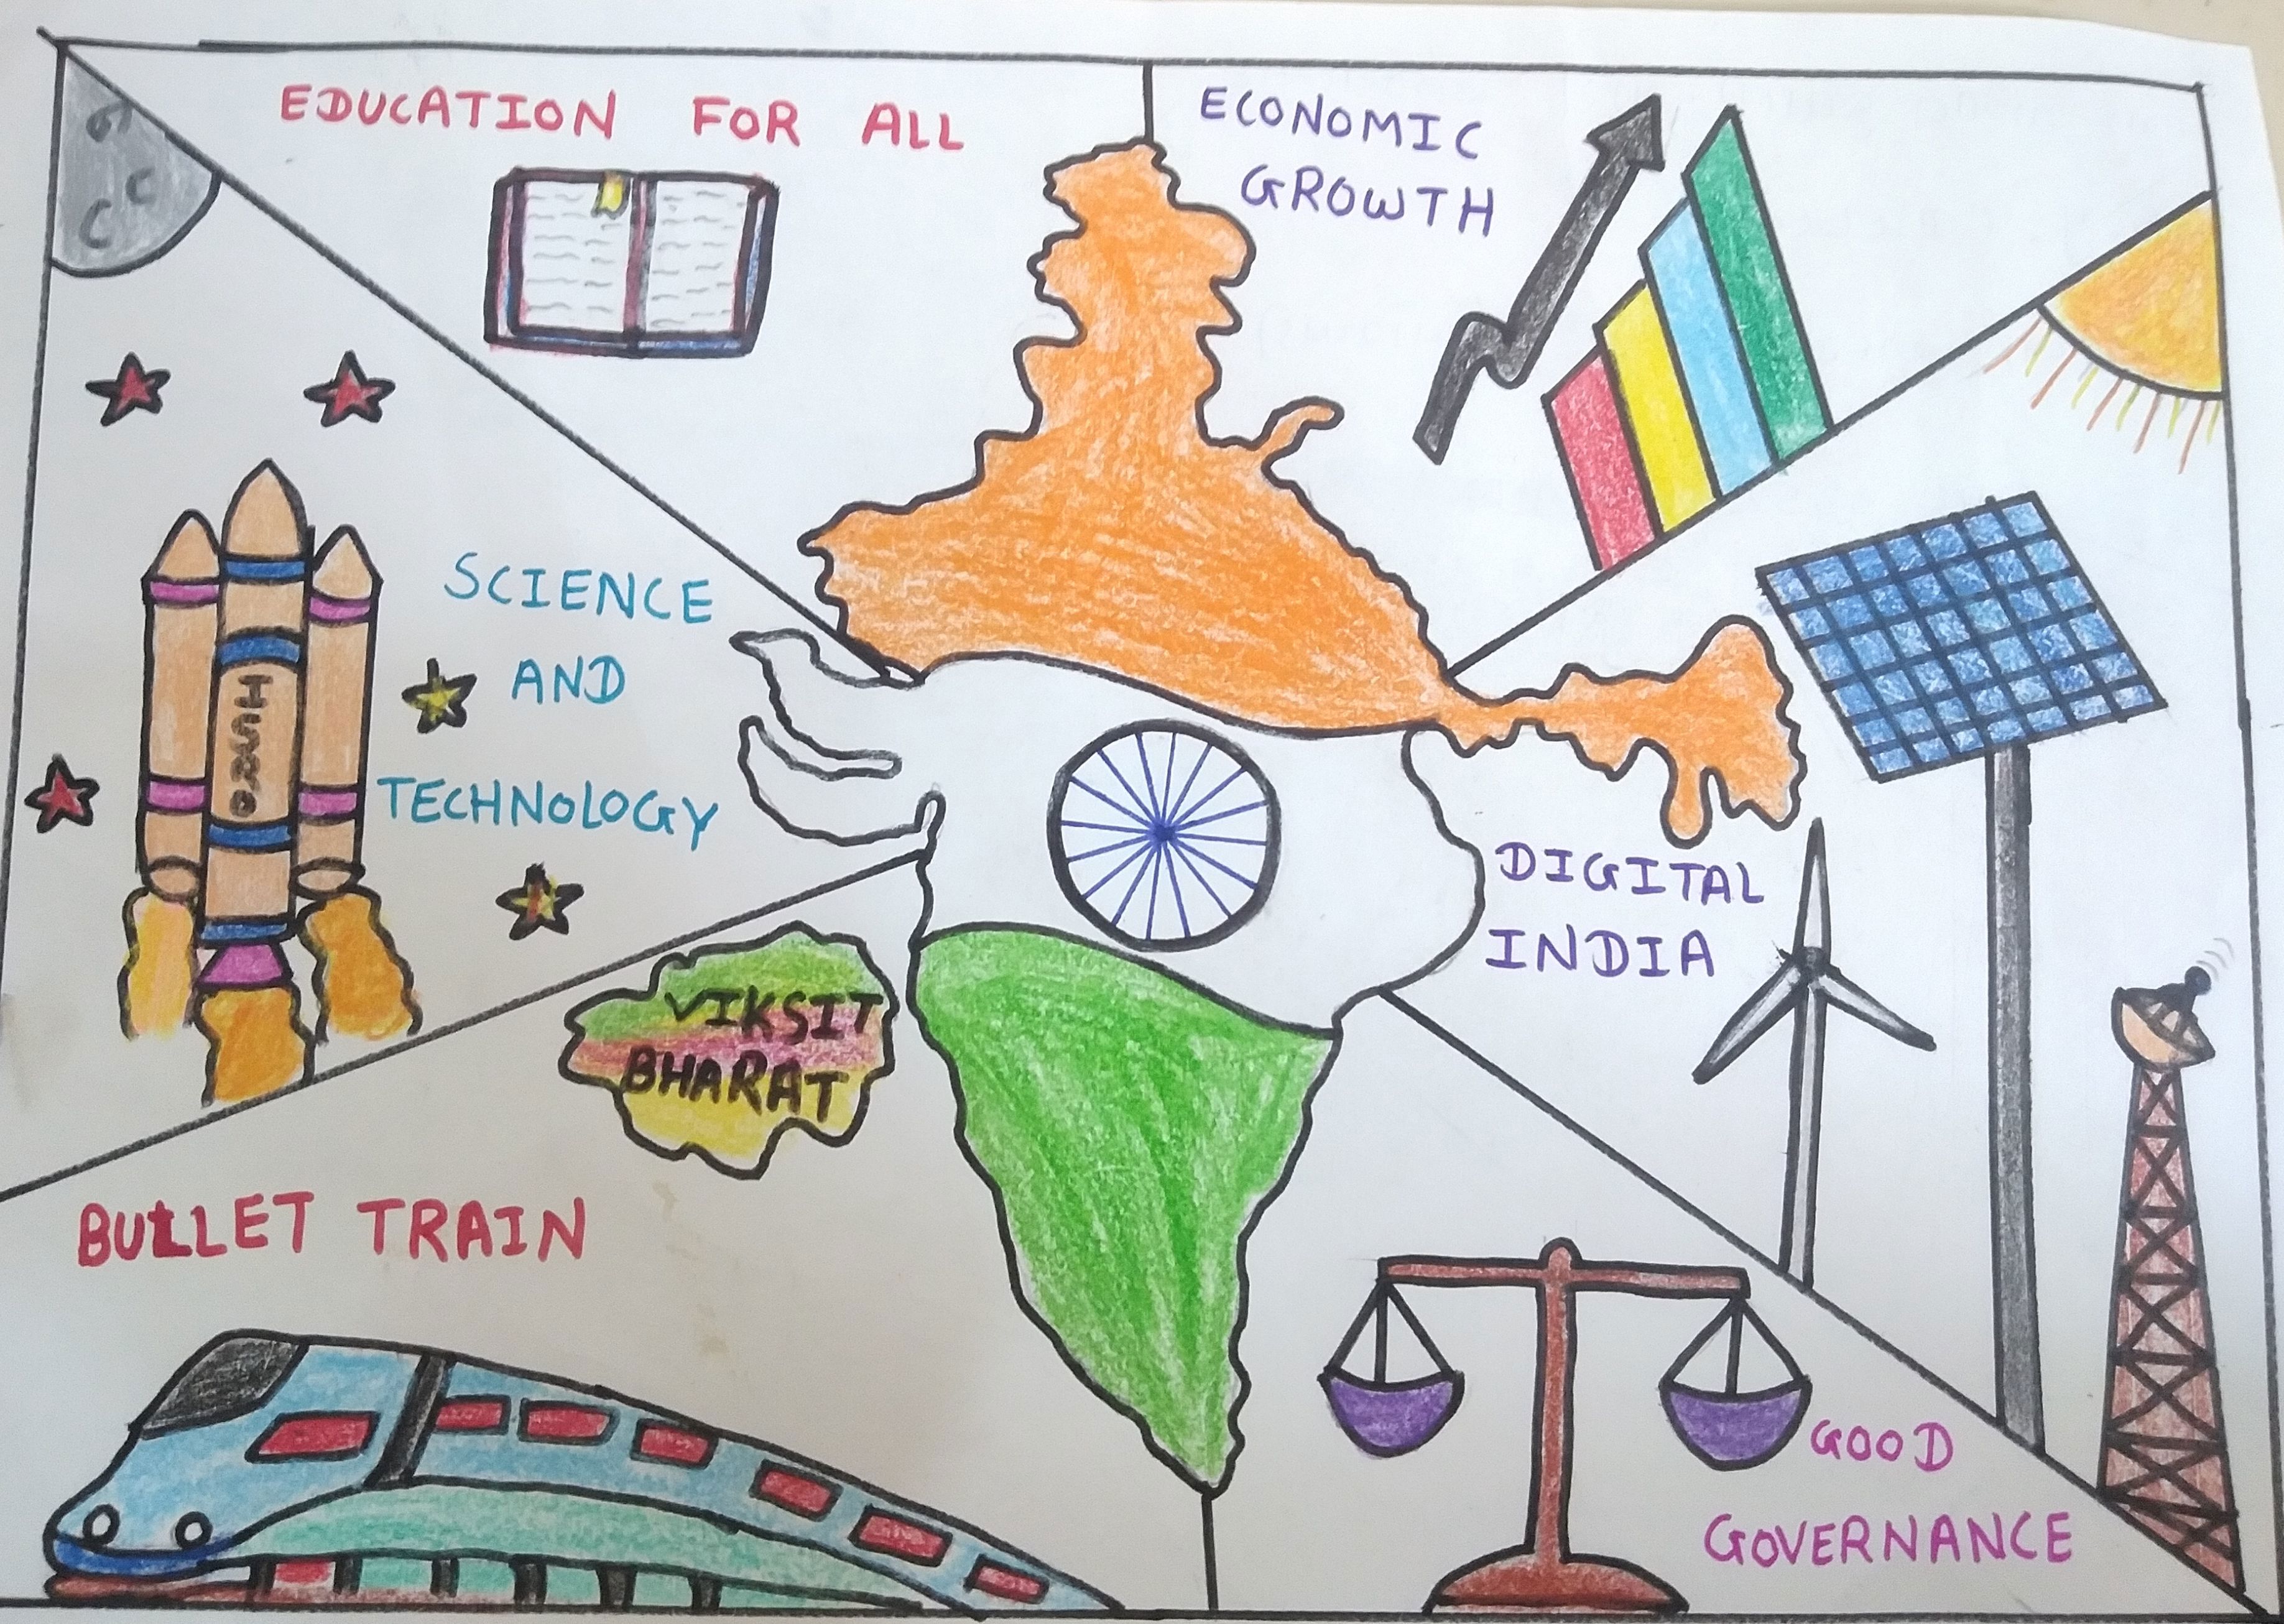 EDUCATION FOR ALL
ECONOMIC
GROWTH
SCIENCE
AND
TECHNOLOGY
DIGITAL
INDIA
VIKSIT
BHARAT
BULLET TRAIN
GOOD
GOVERNANCE